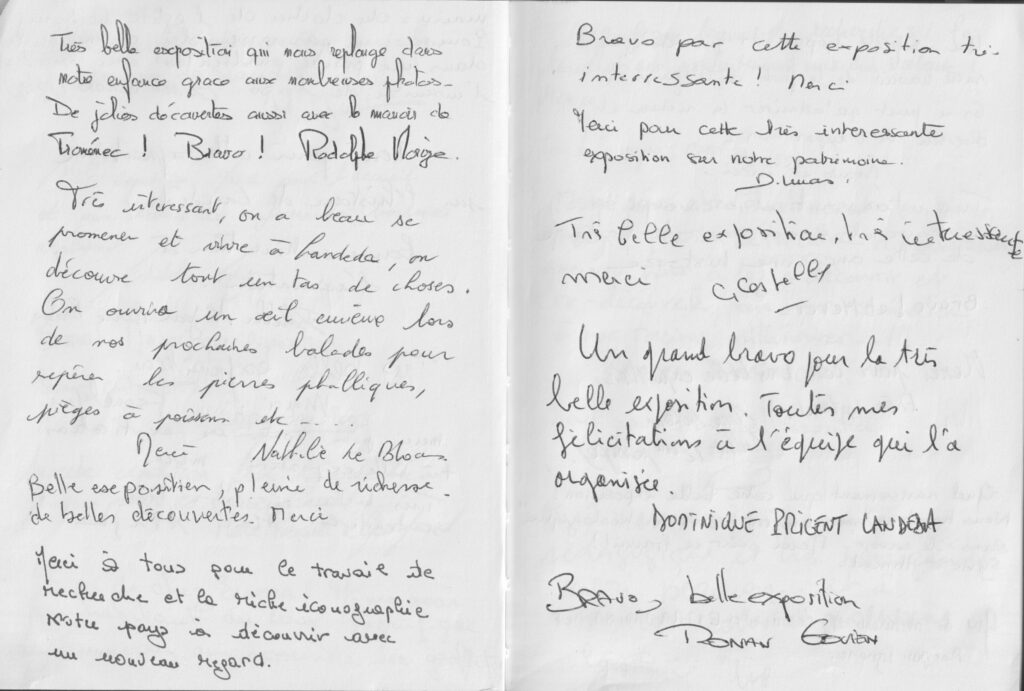 Très belle exposition qui nous replonge dans
notre enfance grace aux nombreuses photos.
De jolies découvertes aussi avec le manoir de
Troménec ! Bravo ! Rodolphe
Très interessant, on a beau se
promener et vivre à Landeda, on
découvre tout un tas de choses.
On ouvrira un œil
lors
de nos prochaines balades pour
repérer les pierres phalliques,
pièges à poissons etc ....
Merci Nathalie Le
Belle exposition, pleine de richesse.
de belles découvertes. Merci
Merci à tous pour ce travail de
recherche et la riche iconographie
Notre pays à découvrir avec
un nouveau regard.
Bravo par cette exposition très
interressante ! Merci
Merci pour cette très interessante
exposition sur notre patrimoine.
Très belle exposition, très interessante
merci G Costell
Un grand bravo pour la très
belle exposition. Toutes mes
félicitations à l'équipe qui l'a
organisée.
DOMINIQUE PRIGENT LANDEDA
BRAVO, belle exposition
RONAN